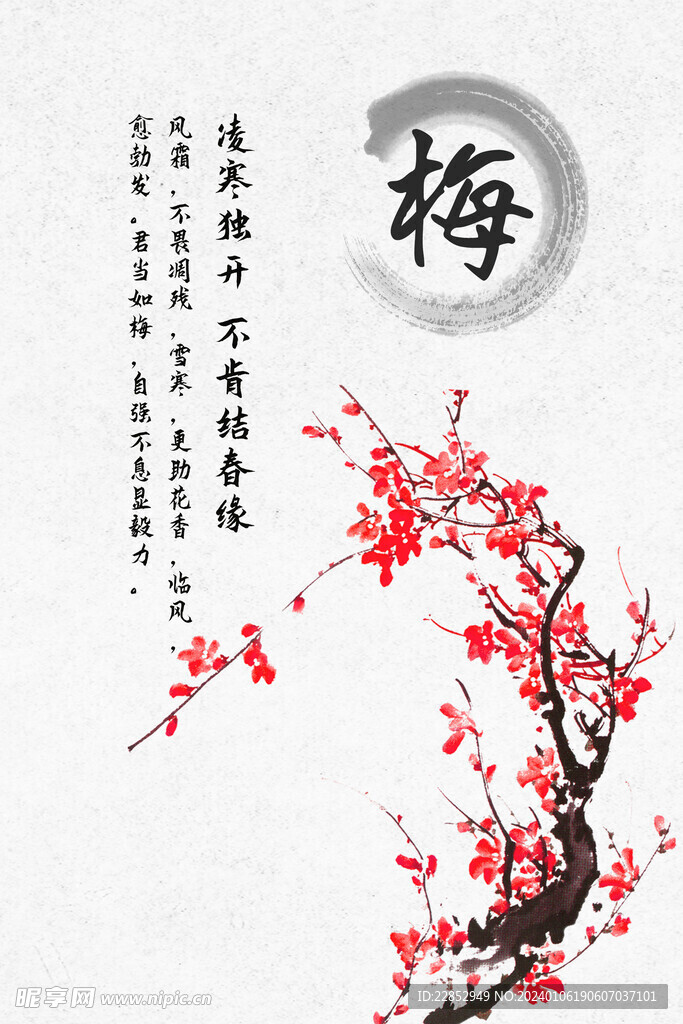 梅
凌寒独开 不肯结春缘
风霜，不畏凋残，雪寒，更助花香，临风，
愈勃发。君当如梅，自强不息显毅力。
昵享网 www.nipic.cn
ID:22852949 NO:20240106190607037101